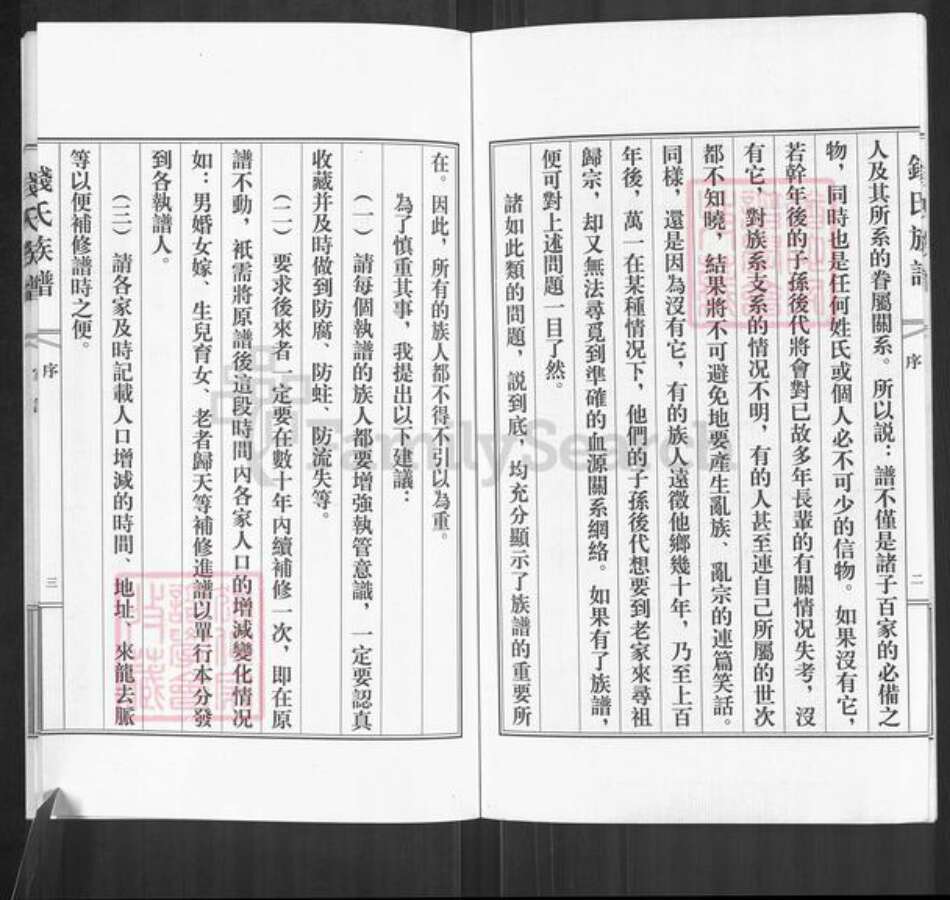 人及其所系的眷屬關系。所以説：譜不僅是諸子百家的必備之
物，同時也是任何姓氏或個人必不可少的信物。如果沒有它，
若幹年後的子孫後代將會對已故多年長輩的有關情况失考，沒
有它，對族系支系的情况不明，有的人甚至連自己所屬的世次
都不知曉，結果將不可避免地要產生亂族、亂宗的連篇笑話。
同樣，還是因為沒有它，有的族人遠徵他鄉幾十年，乃至上百
年後，萬一在某種情况下，他們的子孫後代想要到老家來尋祖
歸宗，却又無法尋覓到準確的血源關系網絡。如果有了族譜，
便可對上述問題一目了然。
諸如此類的問題，説到底，均充分顯示了族譜的重要所
序
二
在。因此，所有的族人都不得不引以為重。
為了慎重其事，我提出以下建議：
（一）請每個執譜的族人都要增強執管意識，一定要認真
收藏并及時做到防腐、防蛀、防流失等。
（二）要求後來者一定要在數十年內續補修一次，即在原
譜不動，衹需將原譜後這段時間內各家人口的增減變化情况
如：男婚女嫁、生兒育女、老者歸天等補修進譜以單行本分發
到各執譜人。
（三）請各家及時記載人口增減的時間、地址、來龍去脈
等以便補修譜時之便。
錢氏族譜
序
三
FamilySearch